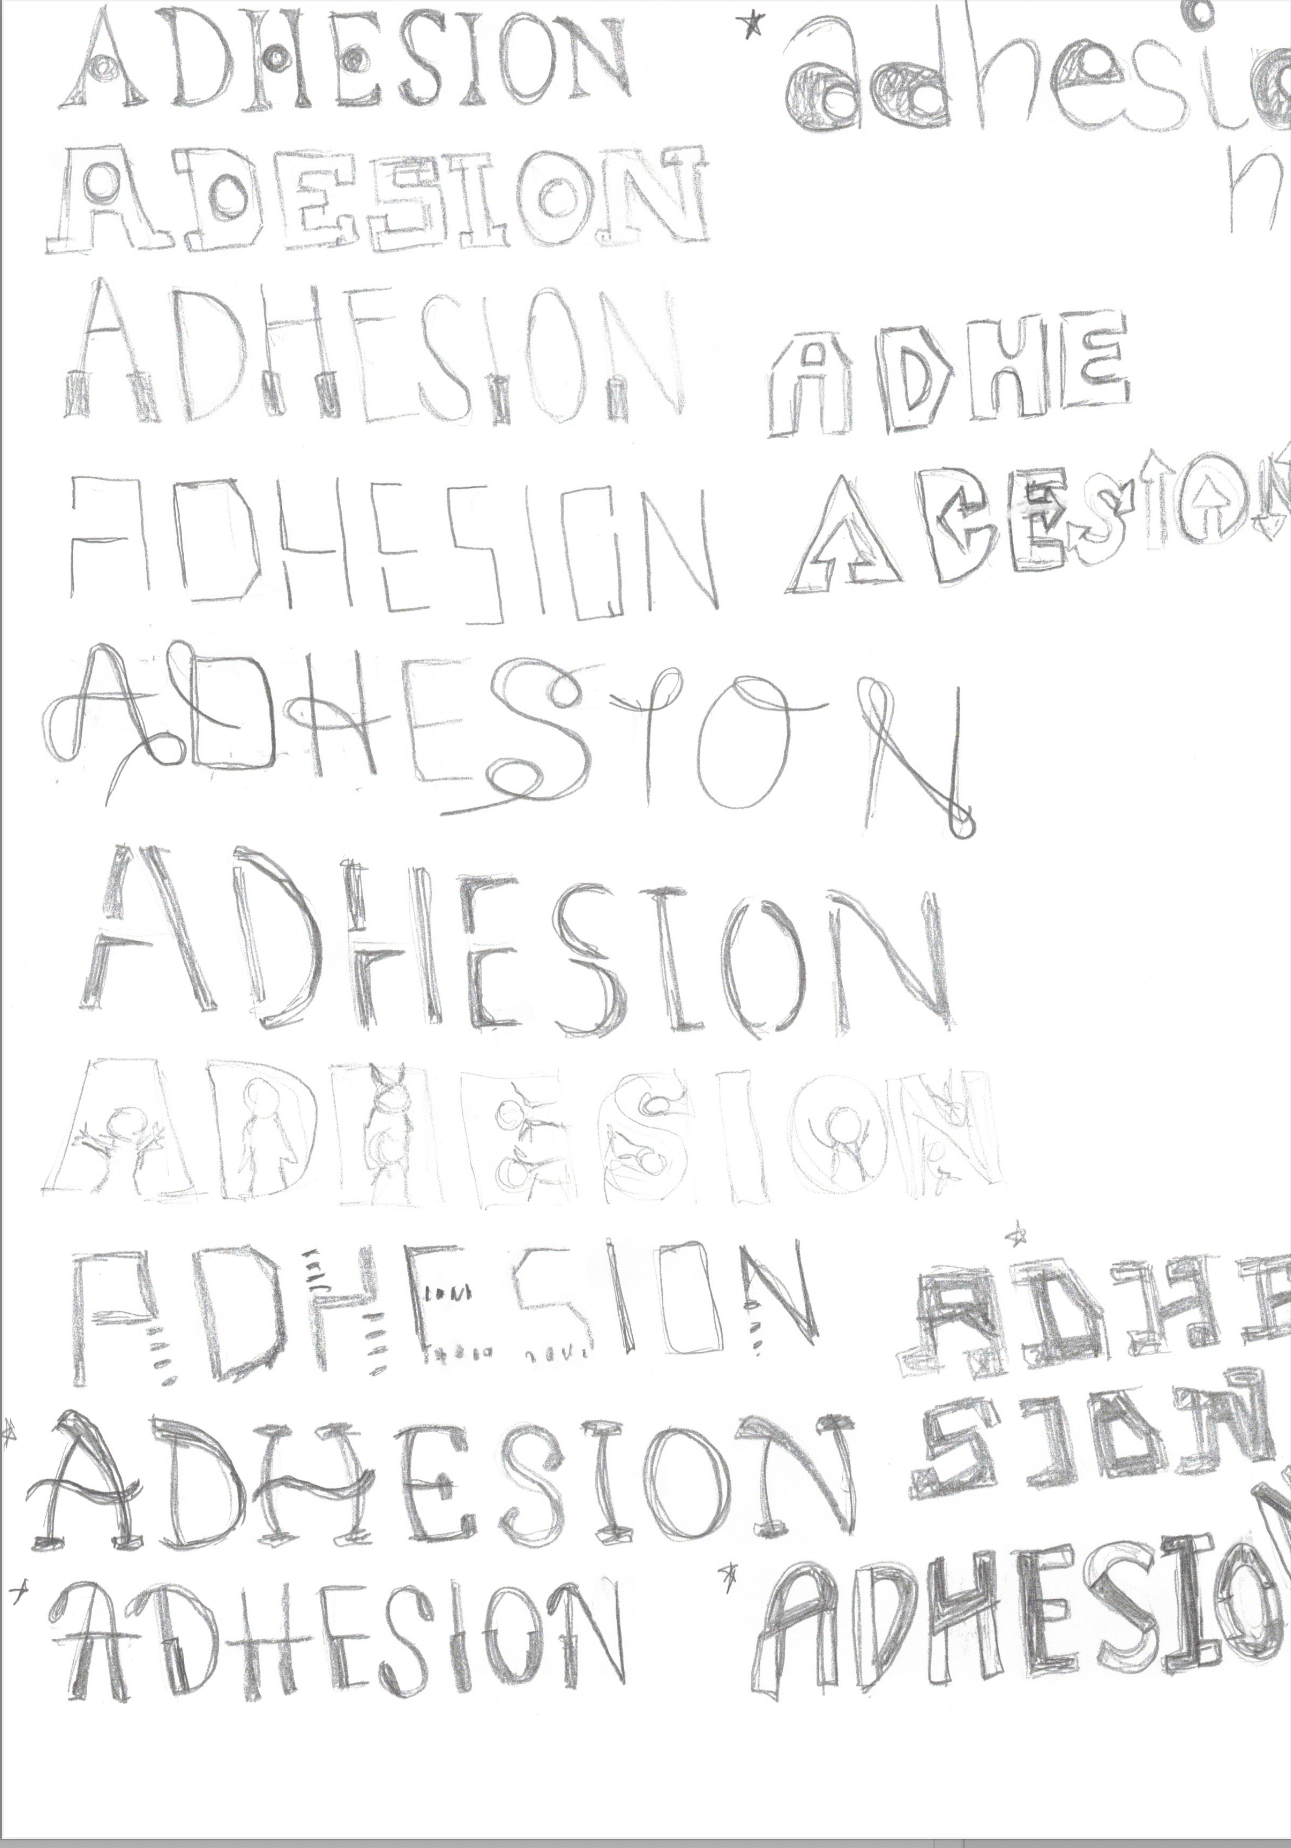 ADHESION
adhesio
n
ADESION
ADHESION
ADHE
ADHESION
ADESION
ADHESION
ADHESION
ADHESION
ADHESION
ADHE
SION
ADHESION
ADHESION
ADHESION